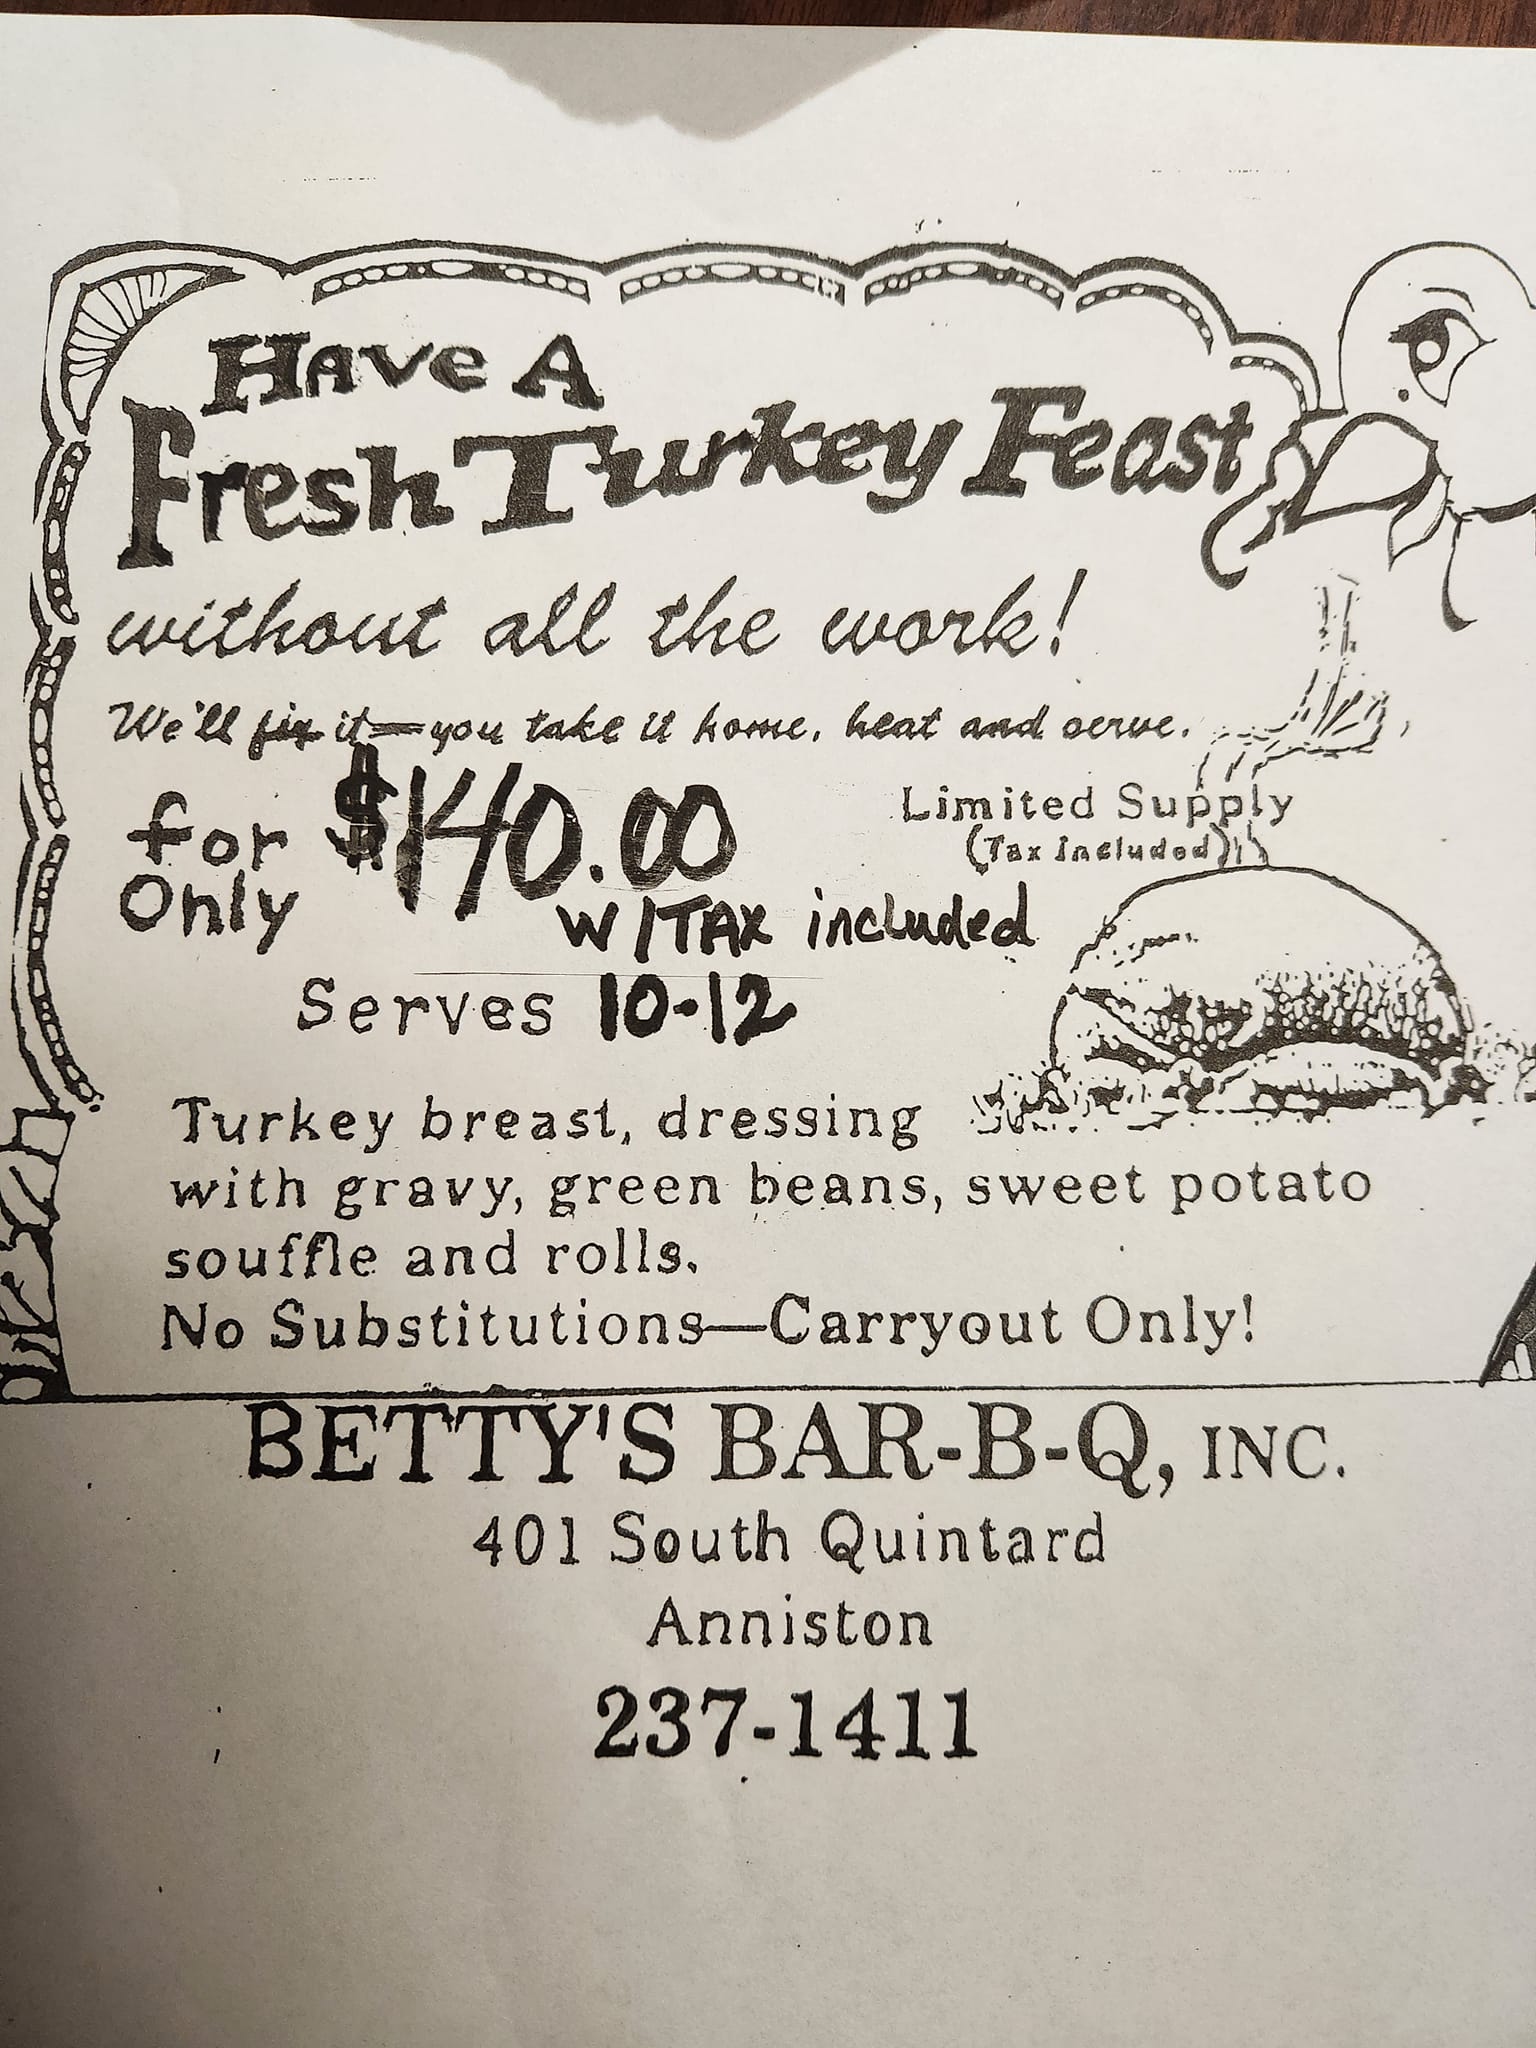 Have A
Fresh Turkey Feast
without all the work!
We'll fix it—you take it home, heat and serve.
for Only $140.00
w/TAX included
Limited Supply
(Tax included)
Serves 10-12
Turkey breast, dressing
with gravy, green beans, sweet potato
souffle and rolls.
No Substitutions—Carryout Only!
BETTY'S BAR-B-Q, INC.
401 South Quintard
Anniston
237-1411